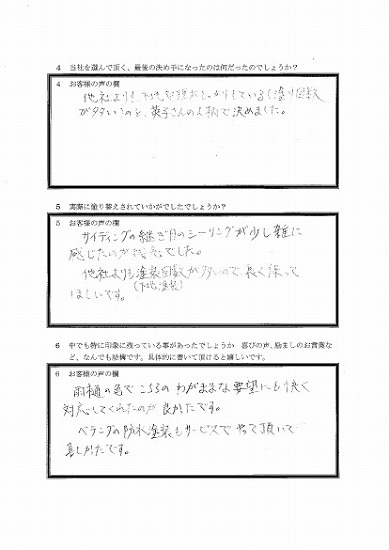 4 当社を選んで頂く、最後の決め手になったのは何だったのでしょうか?
4 お客様の声の欄
他社よりも下地処理がしっかりしている(塗り回数
が多い)のと、英子さんの人柄で決めました。
5 実際に塗り替えされていかがでしたでしょうか?
5 お客様の声の欄
サイディングの継ぎ目のシーリングが少し雑に
感じたのが でした。
他社よりも塗装回数が多いので長く保って
(下地塗装)
ほしいです。
6 中でも特に印象に残っている事があったでしょうか 喜びの声、励ましのお言葉な
ど、なんでも結構です。具体的に書いて頂けると嬉しいです。
6 お客様の声の欄
雨樋の色でこちらのわがままな要望にも快く
対応してくれたのが良かったです。
ベランダの防水塗装もサービスでやって頂いて
嬉しかったです。